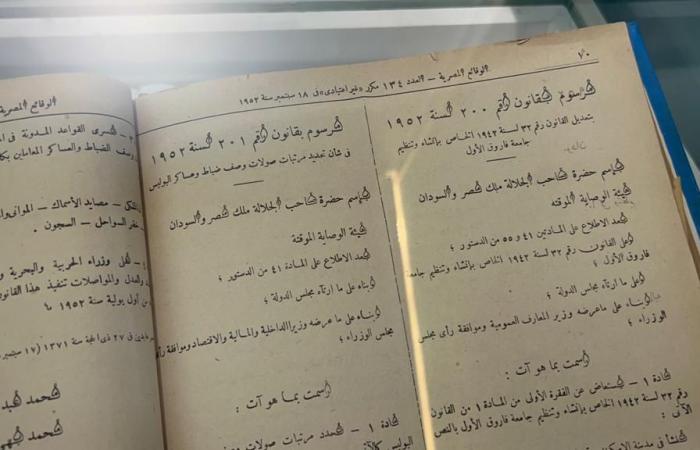 ٧٠
الوقائع المصرية – العدد ١٣٤ مكرر «غير اعتيادى» فى ١٨ سبتمبر سنة ١٩٥٢
مرسوم بقانون رقم ٢٠٠ لسنة ١٩٥٢
بتعديل القانون رقم ٣٢ لسنة ١٩٤٢ الخاص بإنشاء وتنظيم
جامعة فاروق الأول
باسم حضرة صاحب الجلالة ملك مصر والسودان
هيئة الوصاية المؤقتة
بعد الاطلاع على المادتين ٤١ و ٥٥ من الدستور ؛
وعلى القانون رقم ٣٢ لسنة ١٩٤٢ الخاص بإنشاء وتنظيم جامعة
فاروق الأول ؛
وعلى ما ارتآه مجلس الدولة ؛
وبناء على ما عرضه وزير المعارف العمومية وموافقة رأى مجلس
الوزراء ؛
رسمت بما هو آت :
مادة ١ – يستعاض عن الفقرة الأولى من المادة ١ من القانون
رقم ٣٢ لسنة ١٩٤٢ الخاص بإنشاء وتنظيم جامعة فاروق الأول بالنص
الآتى :
تنشأ فى مدينة
مرسوم بقانون رقم ٢٠١ لسنة ١٩٥٢
فى شأن تحديد مرتبات صولات وصف ضباط وعساكر البوليس
باسم حضرة صاحب الجلالة ملك مصر والسودان
هيئة الوصاية المؤقتة
بعد الاطلاع على المادة ٤١ من الدستور ؛
وبناء على ما ارتآه مجلس الدولة ؛
وبناء على ما عرضه وزيرا الداخلية والمالية والاقتصاد وموافقة رأى
مجلس الوزراء ؛
رسمت بما هو آت :
مادة ١ – تحدد مرتبات صولات
البوليس كالآتى
الوقائع المصرية
تسرى القواعد المدونة فى
وصف الضباط والعساكر المعاملين
مصايد الأسماك – الموانى
خفر السواحل – السجون .
على وزراء الحربية والبحرية
والعدل والمواصلات تنفيذ هذا القانون
من أول يولية سنة ١٩٥٢ م
فى ٢٧ ذى الحجة سنة ١٣٧١ (١٧ سبتمبر
محمد عبد
محمد